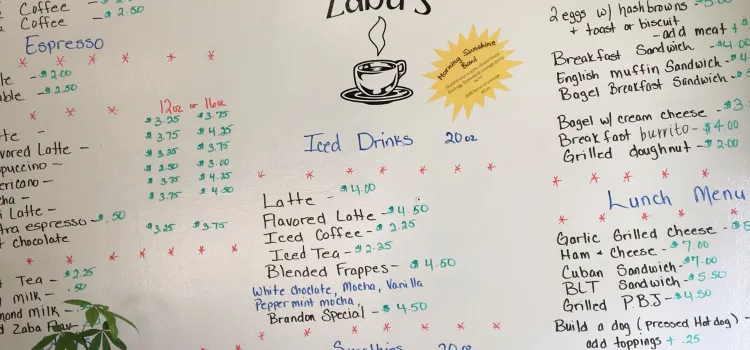 Coffee - $2.50
Coffee -
Espresso
- $2.00
- $2.50
12oz or 16oz
$3.25 $3.75
Latte - $3.75 $4.25
$3.25 $3.75
$2.50 $3.00
$3.75 $4.25
$3.75 $4.50
Latte -
espresso - .50
chocolate $3.25 $3.75
Tea - $2.25
Milk - .50
Milk -
Zaba
Zaba's
Morning Sunshine
Bowl
Iced Drinks 20oz
Latte - $4.00
Flavored Latte - $4.50
Iced Coffee - $2.25
Iced Tea - $2.25
Blended Frappes - $4.50
White choclate, Mocha, Vanilla
Peppermint mocha,
Brandon Special - $4.50
Smoothies 20oz
2 eggs w/ hashbrowns
+ toast or biscuit
- add meat +
Breakfast Sandwich - $4.00
English muffin Sandwich -
Bagel Breakfast Sandwich -
Bagel w/ cream cheese -
Breakfast burrito - $4.00
Grilled doughnut - $2.00
Lunch Menu
Garlic Grilled Cheese -
Ham + Cheese - $7.00
Cuban Sandwich - $7.00
BLT Sandwich - $5.50
Grilled P.B.J - $4.50
Build a dog (Pressed Hot dog) -
add toppings + .25